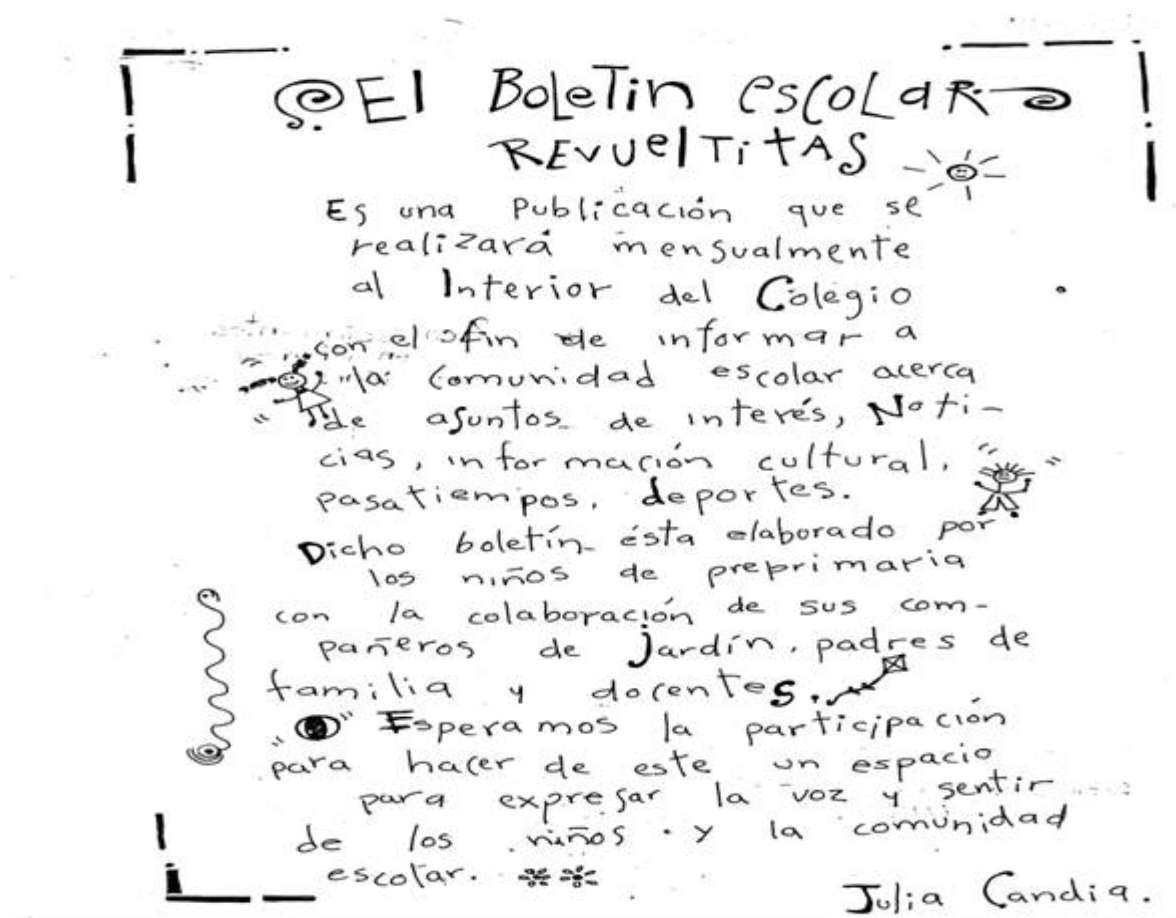 El BoleTin escoLaR
REVUelTitAS
Es una Publicación que se
realizará mensualmente
al Interior del Colegio
con el fin de informar a
la comunidad escolar acerca
de asuntos de interés, Noti-
cias, información cultural,
pasatiempos, deportes.
Dicho boletín ésta elaborado por
los niños de preprimaria
con la colaboración de sus com-
pañeros de Jardín, padres de
familia y docentes.
Esperamos la participación
para hacer de este un espacio
para expresar la voz y sentir
de los niños y la comunidad
escolar.
Julia Candia.